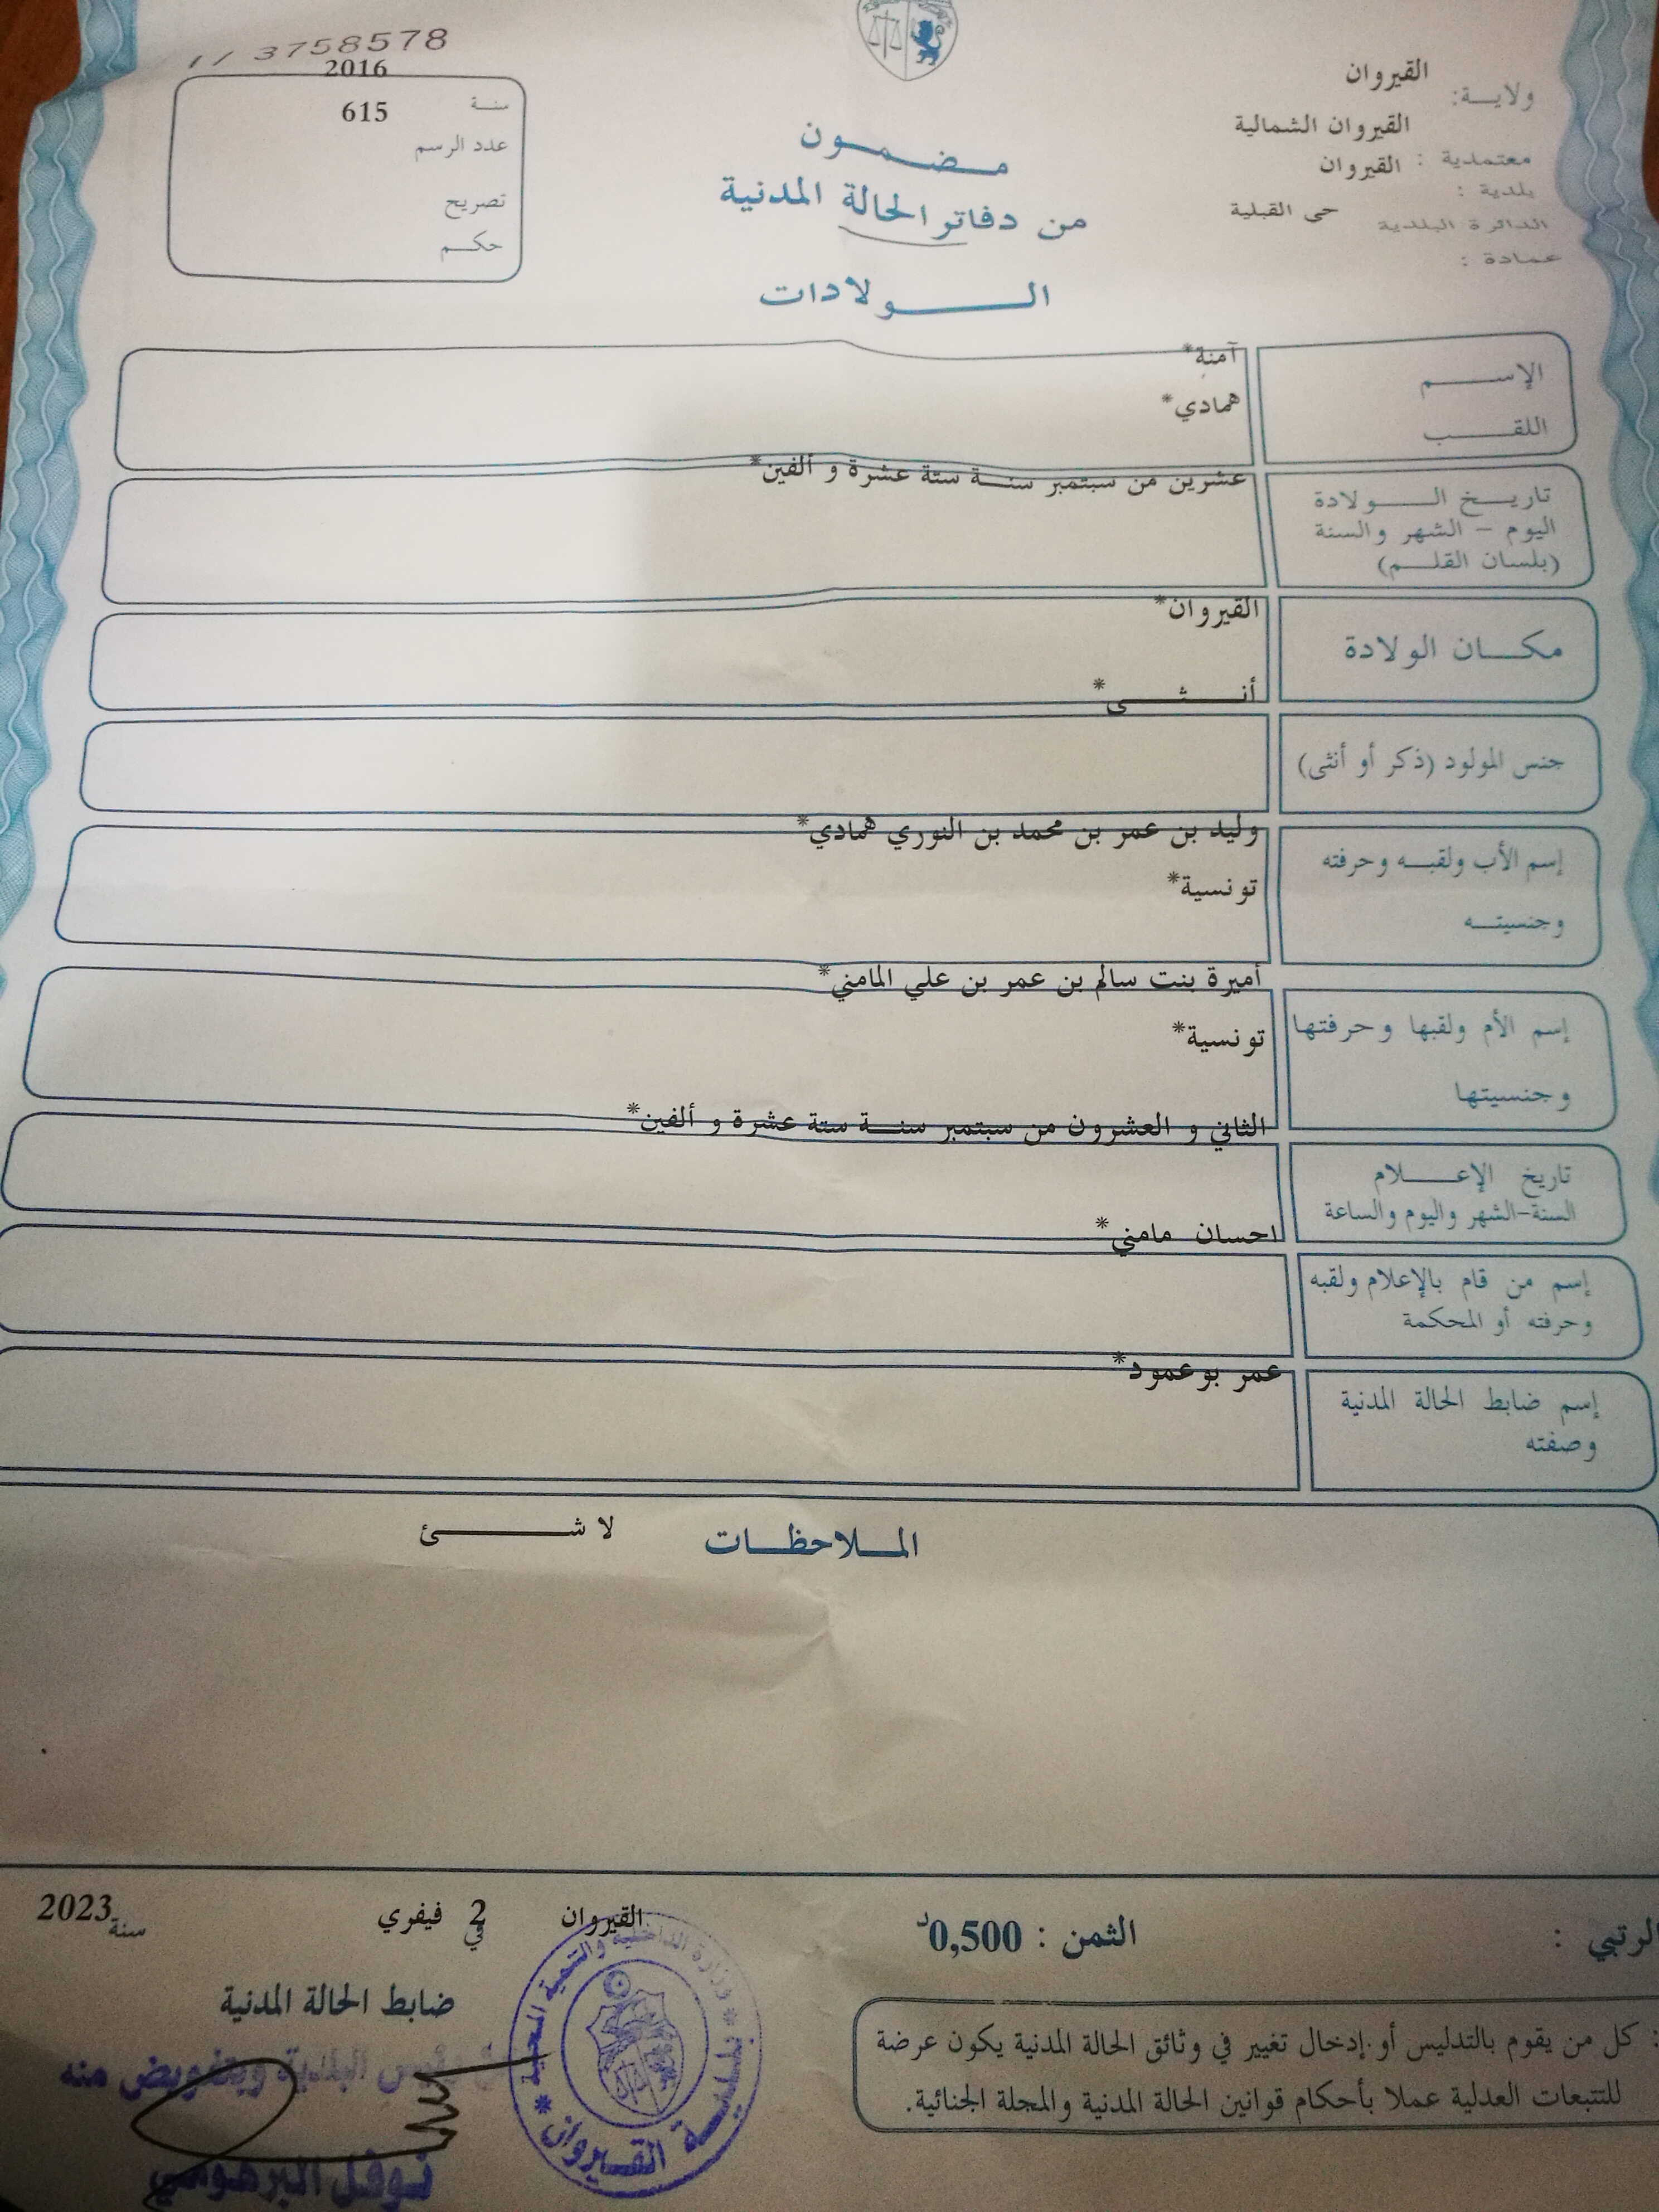 11 3758578
2016
سنة
615
عدد الرسم
تصريح
حكم
القيروان
ولاية:
القيروان الشمالية
معتمدية :
القيروان
بلدية :
حى القبلية
الدائرة البلدية
عمادة :
مضمون
من دفاتر الحالة المدنية
الولادات
الإسم
آمنة*
اللقب
همادي*
تاريخ الولادة
عشرين من سبتمبر سنة ستة عشرة و ألفين*
اليوم - الشهر والسنة
(بلسان القلم)
مكان الولادة
القيروان*
أنثى*
جنس المولود (ذكر أو أنثى)
وليد بن عمر بن محمد بن النوري همادي*
إسم الأب ولقبه وحرفته
تونسية*
وجنسيته
أميرة بنت سالم بن عمر بن علي المامني*
إسم الأم ولقبها وحرفتها
تونسية*
وجنسيتها
الثاني و العشرون من سبتمبر سنة ستة عشرة و ألفين*
تاريخ الإعلام
السنة-الشهر واليوم والساعة
احسان مامني*
إسم من قام بالإعلام ولقبه
وحرفته أو المحكمة
عمر بوعمود*
إسم ضابط الحالة المدنية
وصفته
الملاحظات
لا شئ
الرتبي :
الثمن : 0,500د
القيروان
في 2 فيفري
سنة 2023
ضابط الحالة المدنية
رئيس البلدية وبتفويض منه
نوفل البرهومي
وزارة الداخلية والتنمية المحلية
بلدية القيروان
: كل من يقوم بالتدليس أو إدخال تغيير في وثائق الحالة المدنية يكون عرضة
للتتبعات العدلية عملا بأحكام قوانين الحالة المدنية والمجلة الجنائية.